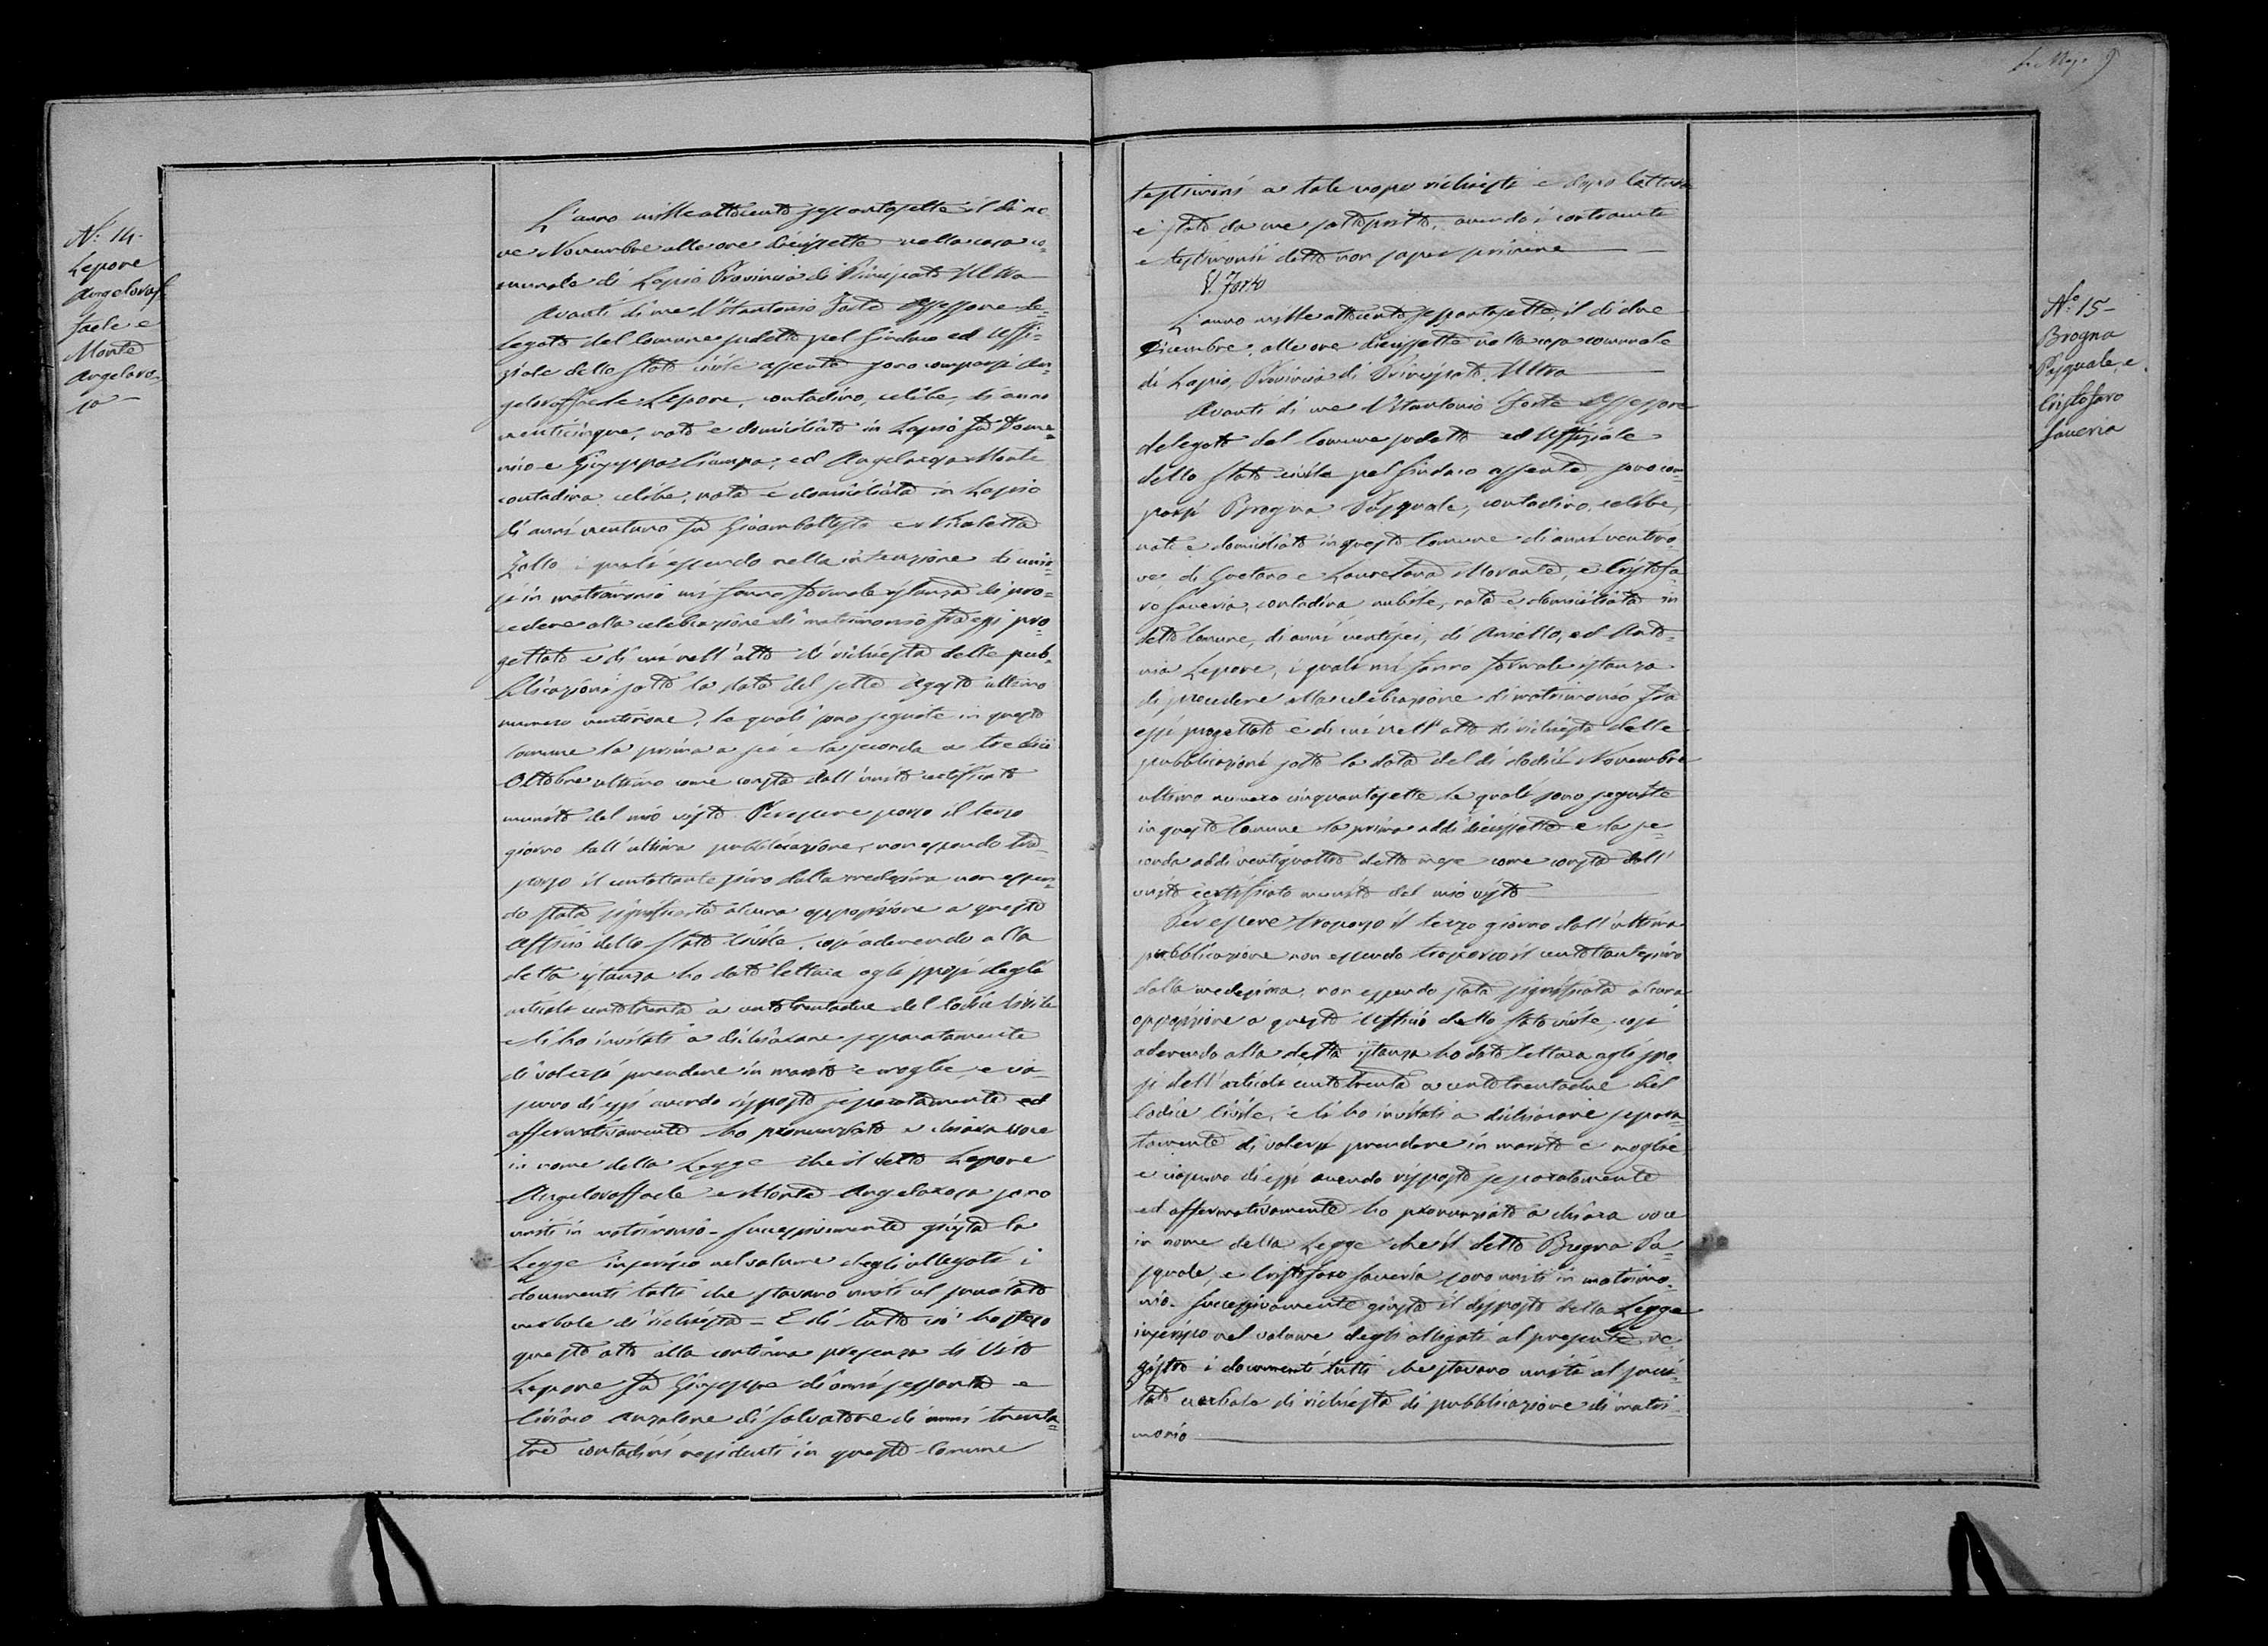 N.° 14.
Lepore
Angeloraf
faele e
Monte
Angelaro
sa
L'anno mille ottocento sessantasette il di no
ve Novembre alle ore diciassette nella casa co=
munale di Lapio Provincia di Principato Ultra
Avanti di me Vitantonio Forte Assessore de=
legato del Comune sudetto pel Sindaco ed Uffi=
ziale dello Stato civile assente sono comparsi An=
geloraffaele Lepore, contadino, celibe, di anni
venticinque, nato e domiciliato in Lapio fu Dome=
nico e Giuseppa Ciampa, ed Angelarosa Monte
contadina celibe, nata e domiciliata in Lapio
di anni ventuno fu Giambattista e Nicoletta
Zollo i quali essendo nella intenzione di unir=
si in matrimonio mi fanno formale istanza di pro=
cedere alla celebrazione di matrimonio fra essi pro=
gettato e di cui nell'atto di richiesta delle pub=
blicazioni sotto la data del sette Agosto ultimo
numero ventinove, le quali sono seguite in questo
Comune la prima a sei e la seconda a tredici
Ottobre ultimo come consta dall'unito certificato
munito del mio visto. Per essere scorso il terzo
giorno dall'ultima pubblicazione, non essendo tra=
scorso il centottantesimo dalla medesima non essen=
do stata significata alcuna opposizione a questo
Uffizio dello Stato Civile, così aderendo alla
detta istanza ho dato lettura agli sposi degli
articoli centotrenta a centotrentadue del Codice Civile
e li ho invitati a dichiarare separatamente
di volersi prendere in marito e moglie, e cia=
scuno di essi avendo risposto separatamente ed
affermativamente ho pronunziato a chiara voce
in nome della Legge che il detto Lepore
Angeloraffaele e Monte Angelarosa sono
uniti in matrimonio. Successivamente giusta la
Legge inserisco nel volume degli allegati i
documenti tutti che stavano uniti al precitato
verbale di richiesta = E di tutto ciò ho steso
questo atto alla continua presenza di Vito
Lepore fu Giuseppe di anni sessanta e
Ciriaco Anzalone di Salvatore di anni trenta=
tre contadini residenti in questo Comune
9
testimoni a tale uopo richiesti e dopo lettura
è stato da me sottoscritto, avendo i contraenti
e testimoni detto non saper scrivere
V. Forte
N.° 15
Brogna
Pasquale, e
Cristofaro
Saveria
L'anno mille ottocento sessantasette, il di due
Dicembre, alle ore diciassette nella casa comunale
di Lapio, Provincia di Principato Ultra
Avanti di me Vitantonio Forte Assessore
delegato del Comune sudetto ed Uffiziale
dello Stato civile pel Sindaco assente sono com=
parsi Brogna Pasquale, contadino, celibe,
nato e domiciliato in questo Comune di anni ventino=
ve, di Gaetano e Lauretana Morante, e Cristofa
ro Saveria, contadina nubile, nata e domiciliata in
detto Comune, di anni ventisei, di Aniello, ed Anto=
nia Lepore, i quali mi fanno formale istanza
di procedere alla celebrazione di matrimonio fra
essi progettato e di cui nell'atto di richiesta delle
pubblicazioni sotto la data del di dodici Novembre
ultimo numero cinquantasette le quali sono seguite
in questo Comune la prima addi diciassette e la se=
conda addi ventiquattro detto mese come consta dall'
unito certificato munito del mio visto
Per essere trascorso il terzo giorno dall'ultima
pubblicazione non essendo trascorso il centottantesimo
dalla medesima, non essendo stata significata alcuna
opposizione a questo Uffizio dello Stato civile, così
aderendo alla detta istanza ho dato lettura agli spo
si dell'articolo centotrenta a centotrentadue del
Codice Civile, e li ho invitati a dichiarare separa=
tamente di volersi prendere in marito e moglie
e ciascuno di essi avendo risposto separatamente
ed affermativamente ho pronunziato a chiara voce
in nome della Legge che il detto Brogna Pa=
squale, e Cristofaro Saveria sono uniti in matrimo=
nio. Successivamente giusta il disposto della Legge
inserisco nel volume degli allegati al presente re=
gistro i documenti tutti che stavano uniti al preci=
tato verbale di richiesta di pubblicazione di matri=
monio